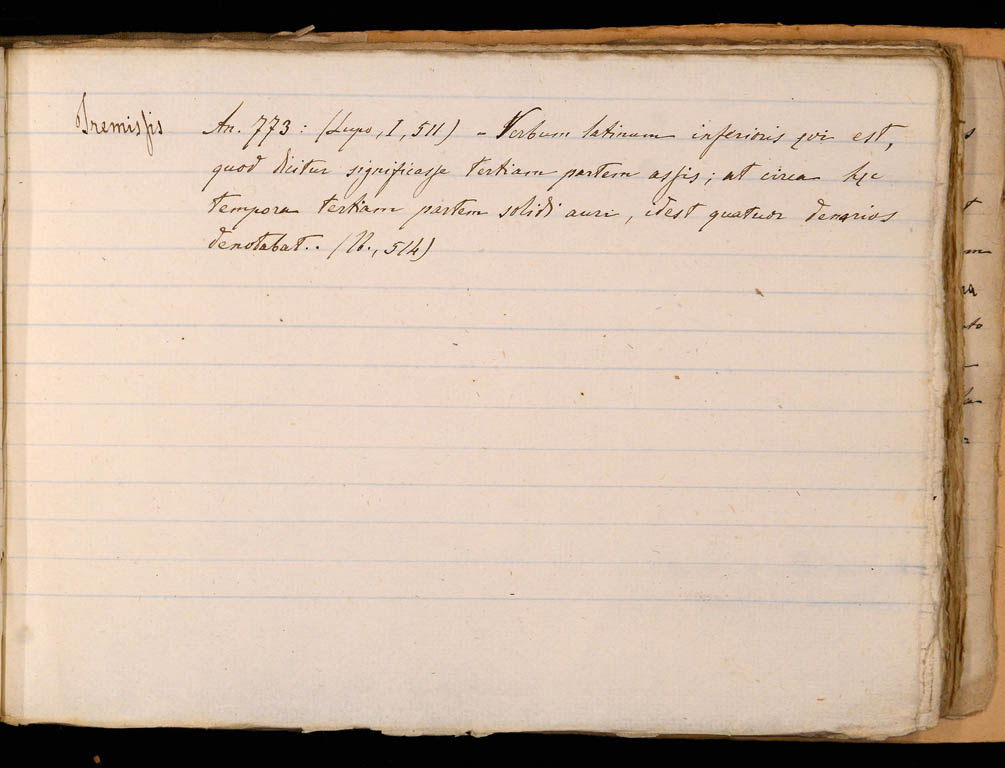 Tremissis An. 773: (Lupo, I, 511) - Verbum latinum inferioris ævi est,
quod dicitur significasse tertiam partem assis; at circa hæc
tempora tertiam partem solidi auri, idest quatuor denarios
denotabat.. (Ib., 514)